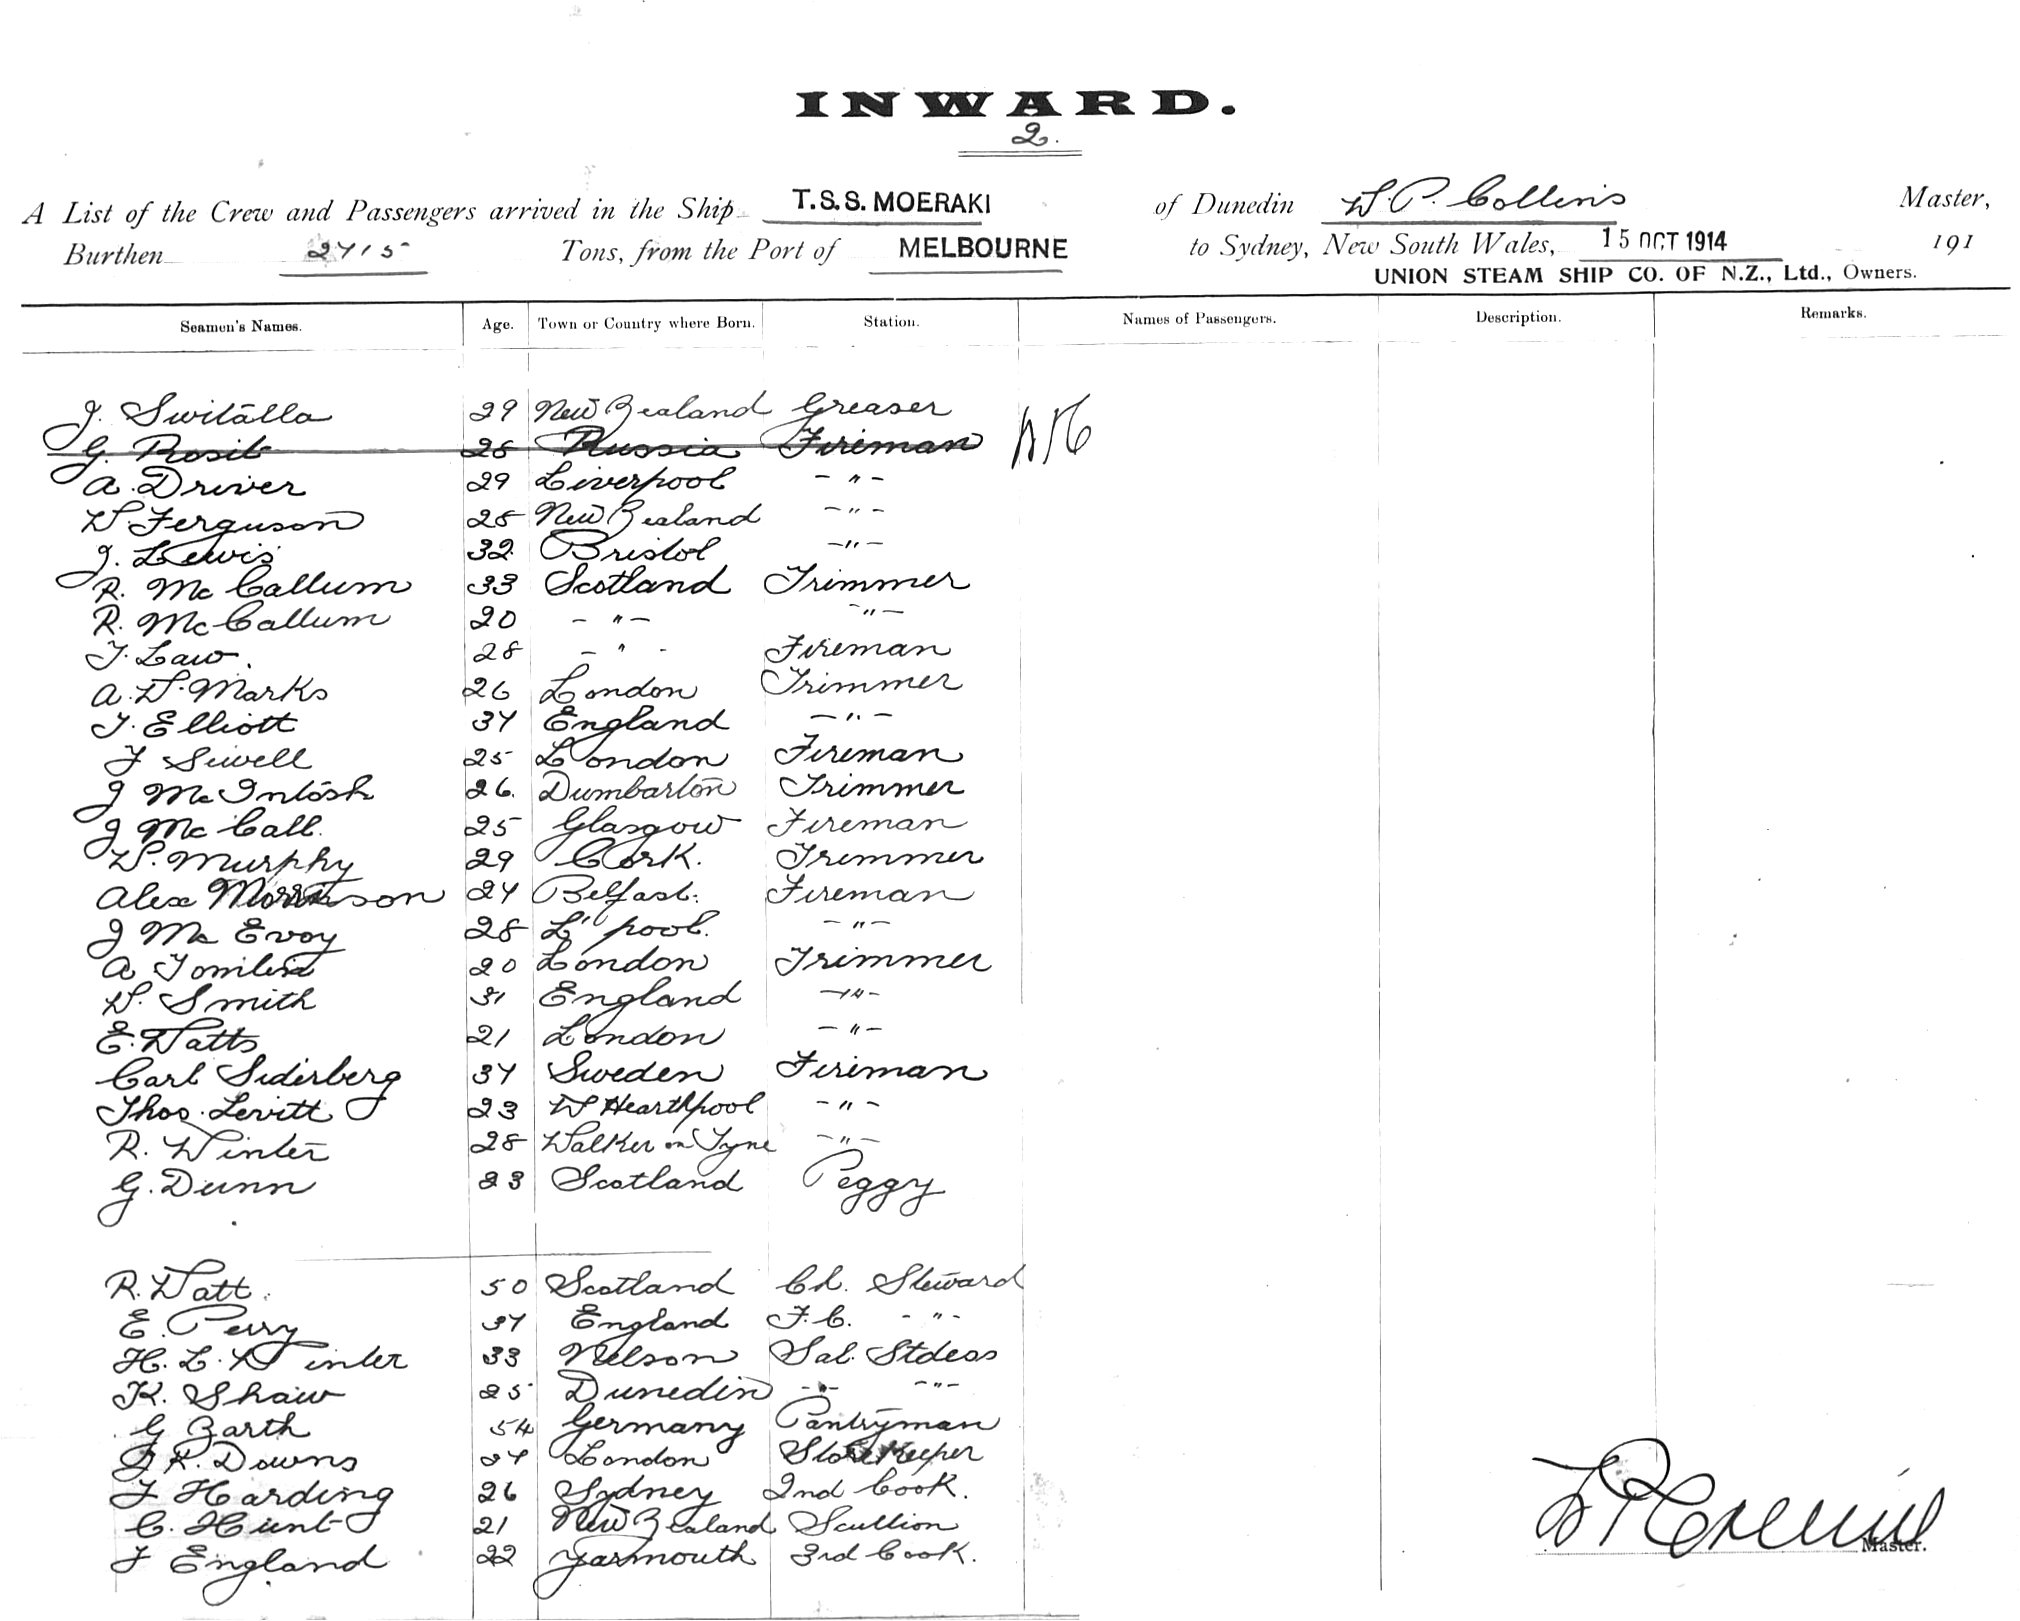 INWARD.
2.
A List of the Crew and Passengers arrived in the Ship T.S.S. MOERAKI of Dunedin W. P. Collins Master,
Burthen 2715 Tons, from the Port of MELBOURNE to Sydney, New South Wales, 15 OCT 1914 191
UNION STEAM SHIP CO. OF N.Z., Ltd., Owners.
Seamen's Names. Age. Town or Country where Born. Station. Names of Passengers. Description. Remarks.
J. Switalla 29 New Zealand Greaser
G. Rosit 28 Russia Fireman
A. Driver 29 Liverpool - " -
W. Ferguson 28 New Zealand - " -
J. Lewis 32 Bristol - " -
R. McCallum 33 Scotland Trimmer
R. McCallum 20 - " - - " -
T. Law. 28 - " - Fireman
A. W. Marks 26 London Trimmer
T. Elliott 37 England - " -
F Sewell 25 London Fireman
J McIntosh 26. Dumbarton Trimmer
J McCall. 25 Glasgow Fireman
W. Murphy 29 Cork. Trimmer
Alex Morrison 27 Belfast. Fireman
J McEvoy 28 L'pool. - " -
A Tomlin 20 London Trimmer
W. Smith 31 England - " -
E. Watts 21 London - " -
Carl Siderberg 37 Sweden Fireman
Thos. Levitt 23 W Hearthpool - " -
R. Winter 28 Walker on Tyne - " -
G. Dunn 23 Scotland Peggy
R. Watt. 50 Scotland Ch. Steward
E. Perry 37 England F.C. - " -
H. L. Winter 33 Nelson Sal. Stdess
K. Shaw 25 Dunedin - " - - " -
G Zarth 54 Germany Pantryman
J R. Downs 27 London Storekeeper
F Harding 26 Sydney 2nd Cook.
C. Hunt 21 New Zealand Scullion
F England 22 Yarmouth 3rd Cook.
W P Collins
Master.